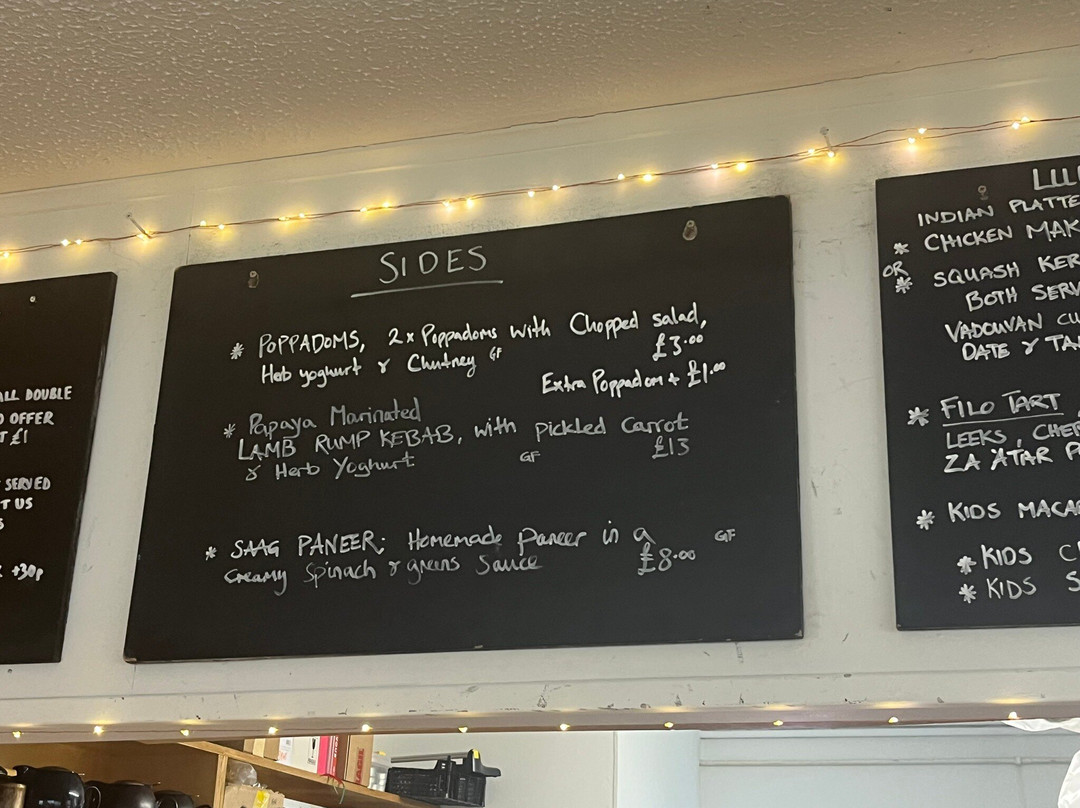 ALL DOUBLE
OFFER
T £1
SERVED
T US
+30p
SIDES
* POPPADOMS, 2x Poppadoms with Chopped salad,
Heb yoghurt & Chutney GF £3.00
Extra Poppadom + £1.00
* Papaya Marinated
LAMB RUMP KEBAB, with pickled Carrot
& Herb Yoghurt GF £13
* SAAG PANEER: Homemade Paneer in a GF
Creamy Spinach & greens Sauce £8.00
INDIAN PLATTE
* CHICKEN MAK
OR
* SQUASH KER
BOTH SERV
VADOUVAN CU
DATE & TA
* FILO TART
LEEKS, CHER
ZA'ATAR P
* KIDS MACA
* KIDS C
* KIDS S